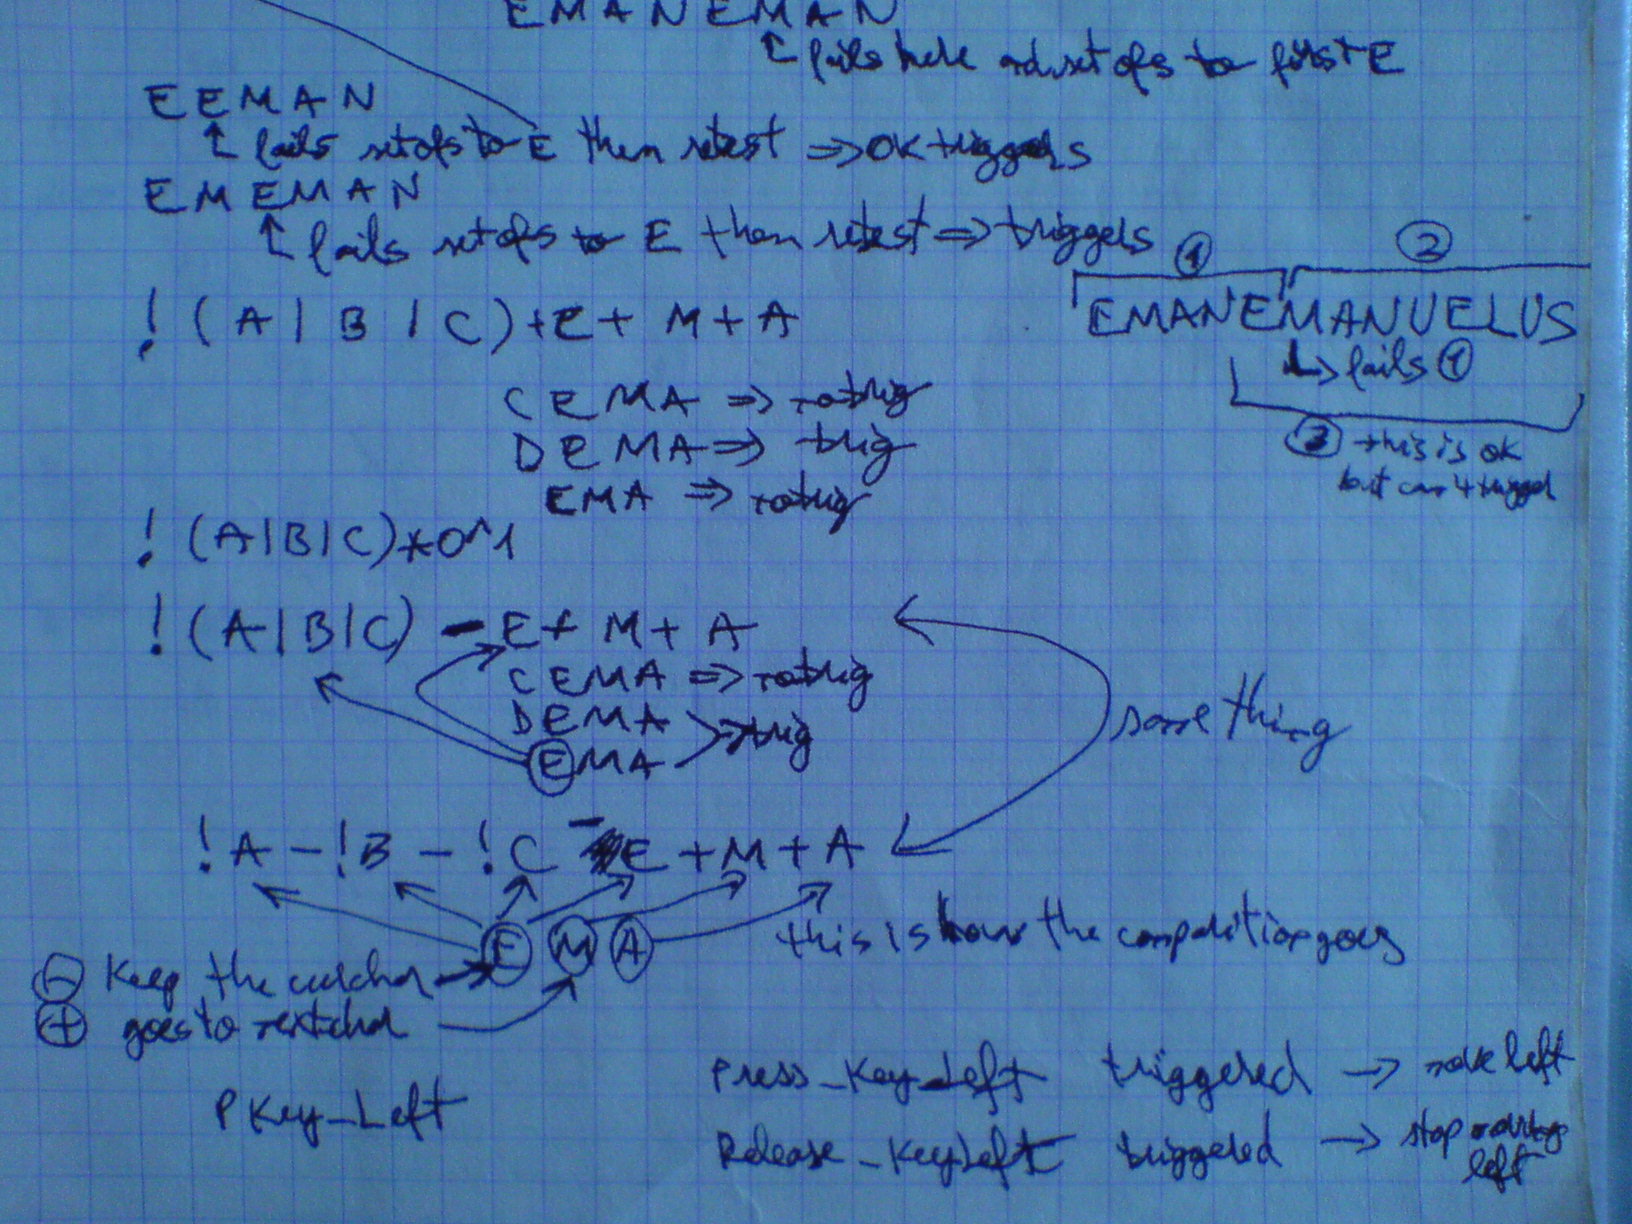 EMANEMAN
fails here and set ofs to first E
EEMAN
fails set ofs to E then retest => OK triggers
EMEMAN
fails set ofs to E then retest => triggers
① ②
EMANEMANUELUS
fails ①
③ this is ok
but can't trigger
!(A|B|C)+E+M+A
CEMA => notrig
DEMA => trig
EMA => notrig
!(A|B|C)*0^1
!(A|B|C)-E+M+A
CEMA => notrig
DEMA
EMA
trig
same thing
!A-!B-!C-E+M+A
E M A
this is how the goes
- Keep the curchar
+ goes to nextchar
PKey_Left
Press_Key_Left triggered → move left
Release_KeyLeft triggered → stop moving left